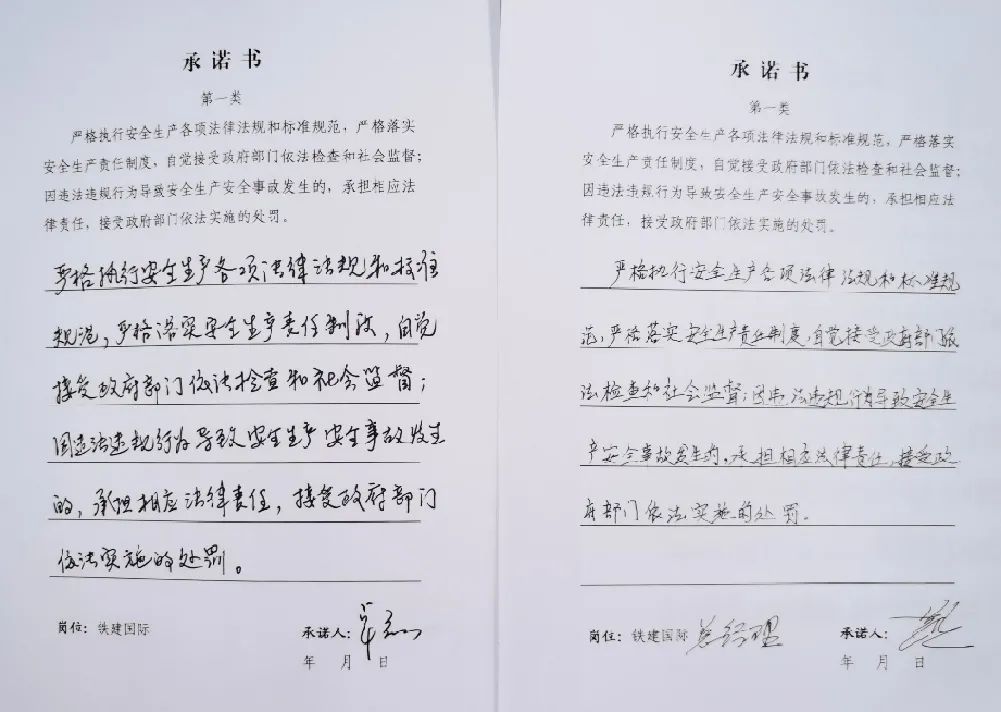 承诺书
第一类
严格执行安全生产各项法律法规和标准规范，严格落实
安全生产责任制度，自觉接受政府部门依法检查和社会监督；
因违法违规行为导致安全生产安全事故发生的，承担相应法
律责任，接受政府部门依法实施的处罚。
严格执行安全生产各项法律法规和标准
规范，严格落实安全生产责任制度，自觉
接受政府部门依法检查和社会监督；
因违法违规行为导致安全生产安全事故发生
的，承担相应法律责任，接受政府部门
依法实施的处罚。
岗位：铁建国际
承诺人：
年 月 日
承诺书
第一类
严格执行安全生产各项法律法规和标准规范，严格落实
安全生产责任制度，自觉接受政府部门依法检查和社会监督；
因违法违规行为导致安全生产安全事故发生的，承担相应法
律责任，接受政府部门依法实施的处罚。
严格执行安全生产各项法律法规和标准规
范，严格落实安全生产责任制度，自觉接受政府部门依
法检查和社会监督；因违法违规行为导致安全生
产安全事故发生的，承担相应法律责任，接受政
府部门依法实施的处罚。
岗位：铁建国际 总经理
承诺人：
年 月 日